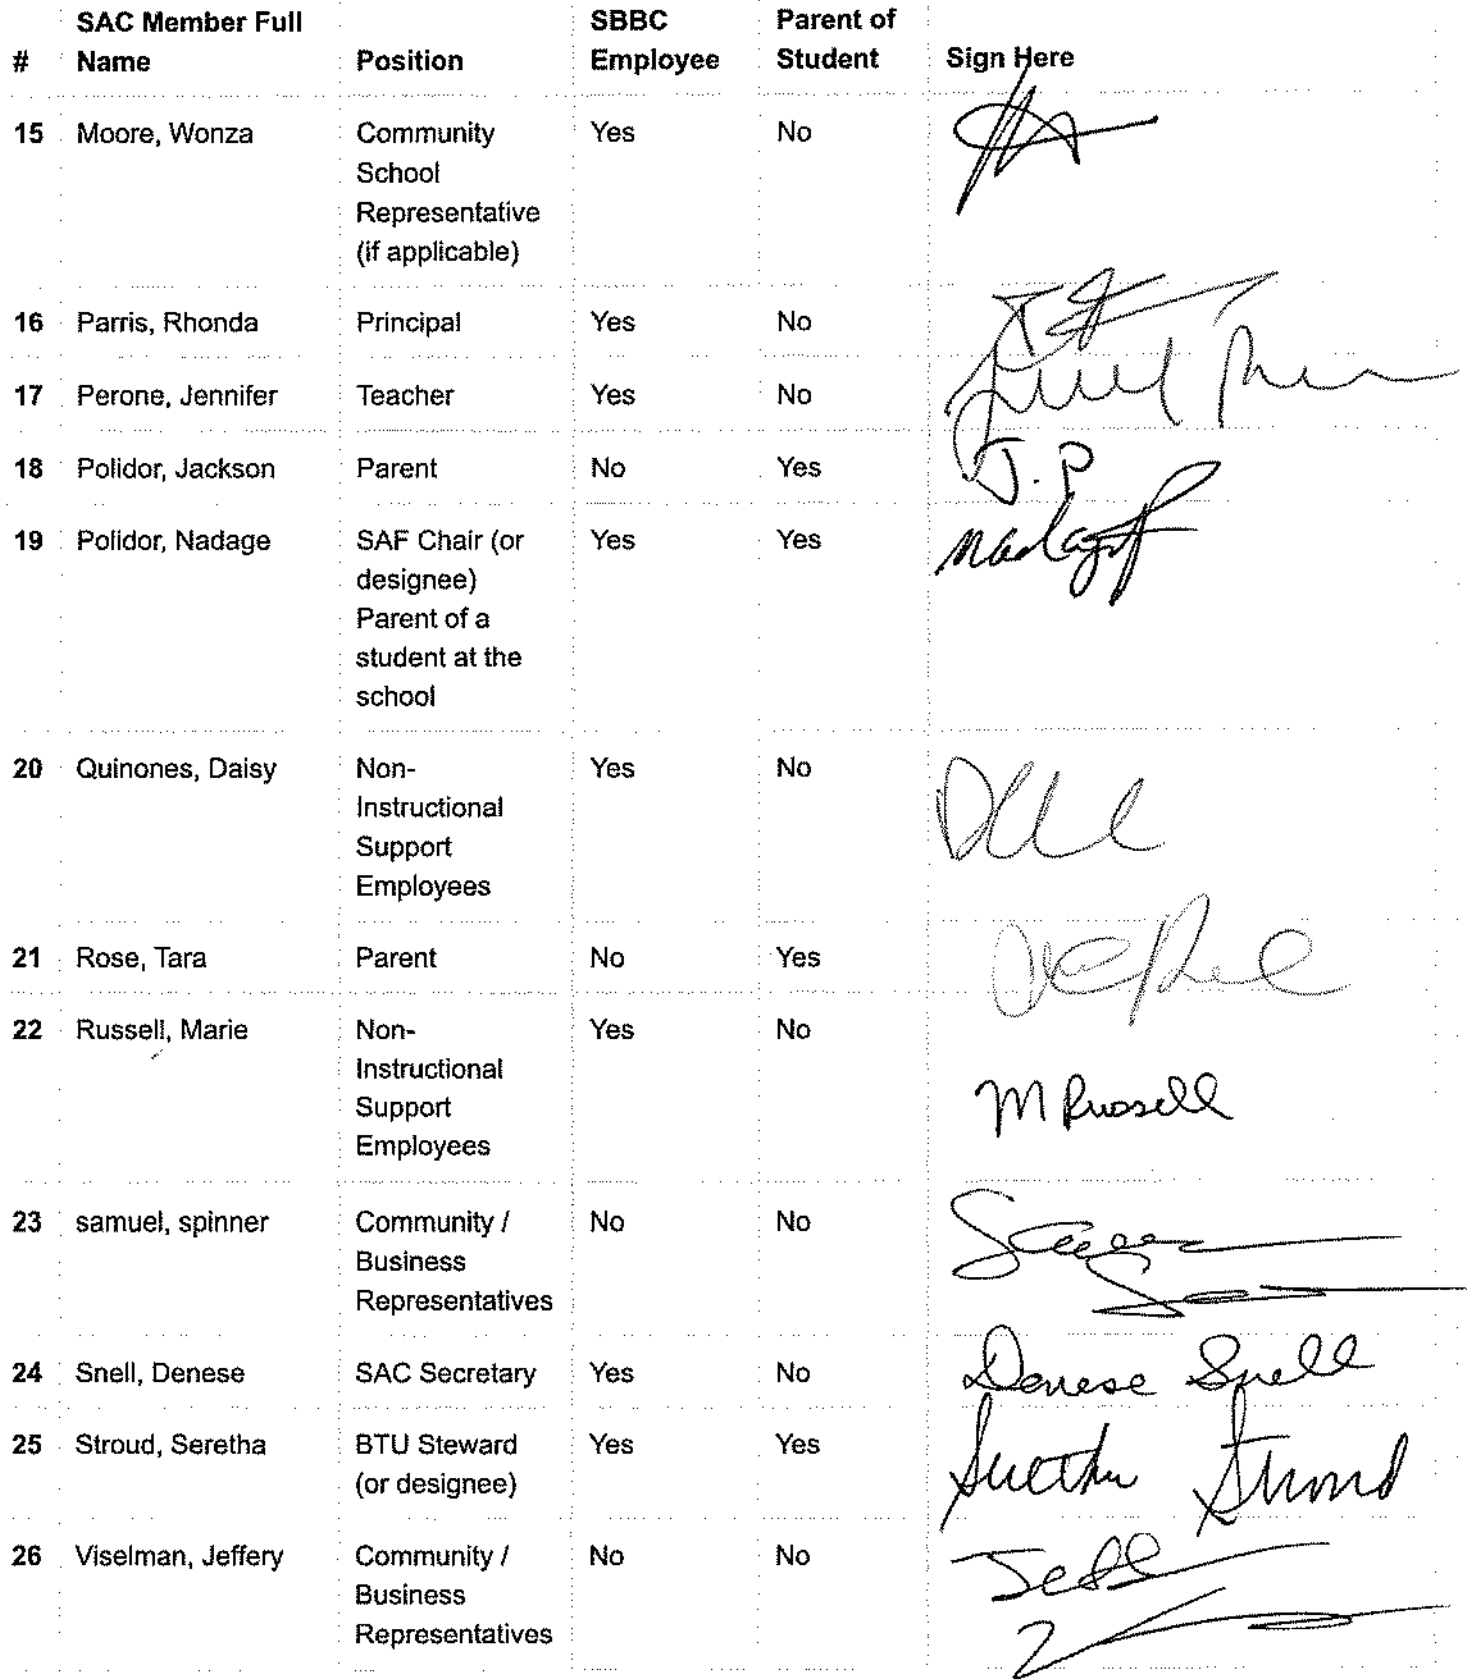 # SAC Member Full Name Position SBBC Employee Parent of Student Sign Here
15 Moore, Wonza Community School Representative (if applicable) Yes No
16 Parris, Rhonda Principal Yes No
17 Perone, Jennifer Teacher Yes No
18 Polidor, Jackson Parent No Yes J.P
19 Polidor, Nadage SAF Chair (or designee) Parent of a student at the school Yes Yes
20 Quinones, Daisy Non-Instructional Support Employees Yes No
21 Rose, Tara Parent No Yes
22 Russell, Marie Non-Instructional Support Employees Yes No M Russell
23 samuel, spinner Community / Business Representatives No No
24 Snell, Denese SAC Secretary Yes No Denese Snell
25 Stroud, Seretha BTU Steward (or designee) Yes Yes Seretha Stroud
26 Viselman, Jeffery Community / Business Representatives No No